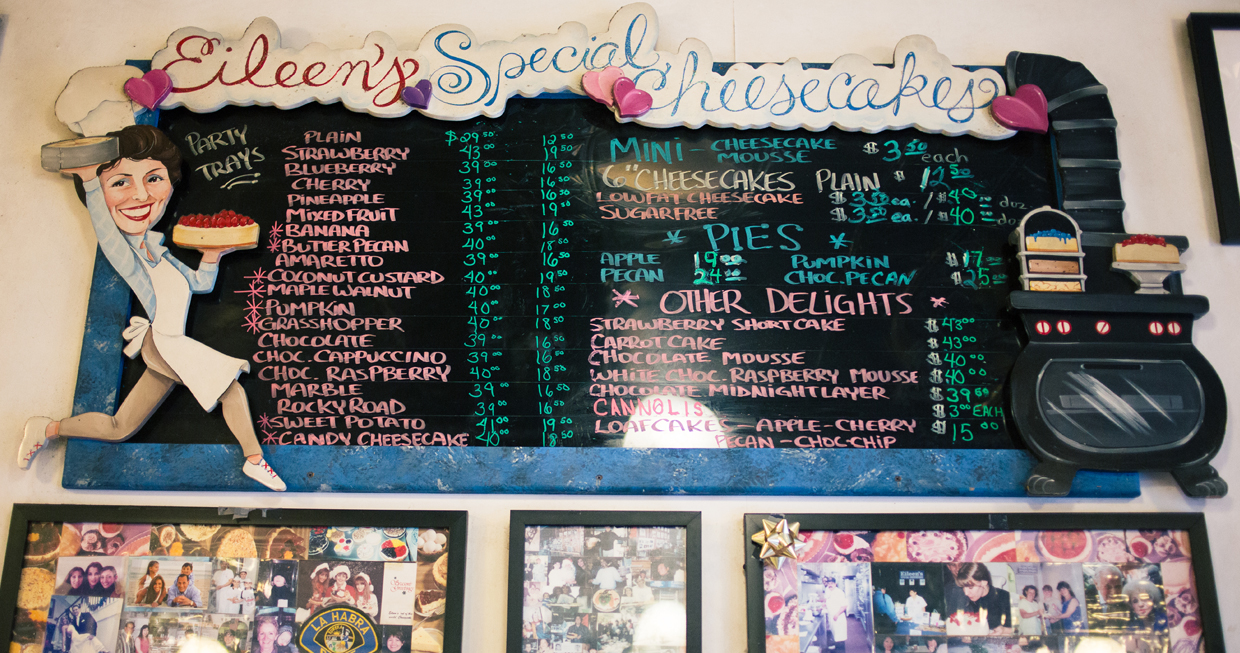 Eileen's Special Cheesecakes
PARTY TRAYS
PLAIN $29.50 12.50
STRAWBERRY 43.00 19.50
BLUEBERRY 39.00 16.50
CHERRY 39.00 16.50
PINEAPPLE 39.00 16.50
MIXED FRUIT 43.00 19.50
*BANANA 39.00 16.50
*BUTTER PECAN 40.00 18.50
AMARETTO 39.00 16.50
*COCONUT CUSTARD 40.00 19.50
*MAPLE WALNUT 40.00 18.50
*PUMPKIN 40.00 17.50
*GRASSHOPPER 40.00 18.50
CHOCOLATE 39.00 16.50
CHOC. CAPPUCCINO 39.00 16.50
CHOC. RASPBERRY 40.00 18.50
MARBLE 39.00 16.50
ROCKY ROAD 39.00 16.50
*SWEET POTATO 41.00 18.50
*CANDY CHEESECAKE 40.00 18.50
MINI - CHEESECAKE MOUSSE $3.50 each
6" CHEESECAKES PLAIN $12.50
LOWFAT CHEESECAKE $3.50 ea. / $40.00 doz
SUGARFREE $3.50 ea. / $40.00 doz
* PIES *
APPLE 19.00 PUMPKIN $17.00
PECAN 24.00 CHOC. PECAN $25.00
* OTHER DELIGHTS *
STRAWBERRY SHORTCAKE $43.00
CARROT CAKE $43.00
CHOCOLATE MOUSSE $40.00
WHITE CHOC. RASPBERRY MOUSSE $40.00
CHOCOLATE MIDNIGHT LAYER $39.50
CANNOLIS $3.00 EACH
LOAFCAKES - APPLE - CHERRY $15.00
PECAN - CHOC-CHIP
LA HABRA
Eileen's